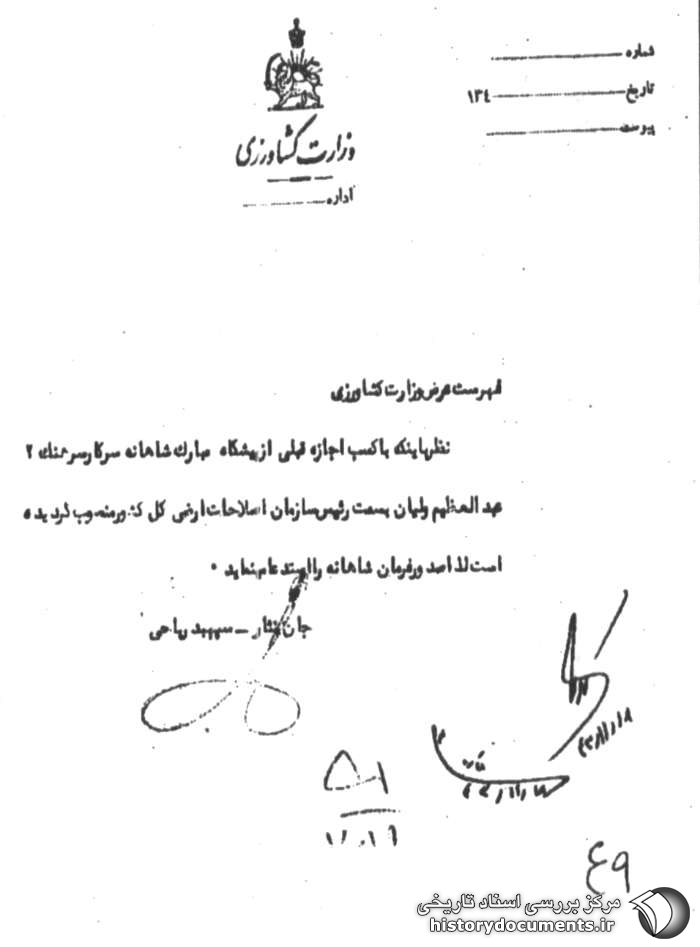 شماره
تاریخ ۱۳٤
پیوست
وزارت کشاورزی
اداره
فهرست عرض وزارت کشاورزی
نظر باینکه با کسب اجازه قبلی از پیشگاه مبارک شاهانه سرکار سرهنگ ۲
عبدالعظیم ولیان بسمت رئیس سازمان اصلاحات ارضی کل کشور منصوب گردیده
است لذا صدور فرمان شاهانه را استدعا مینماید ۰
جان نثار ــ سپهبد ریاحی
۴۹
مرکز بررسی اسناد تاریخی
historydocuments.ir